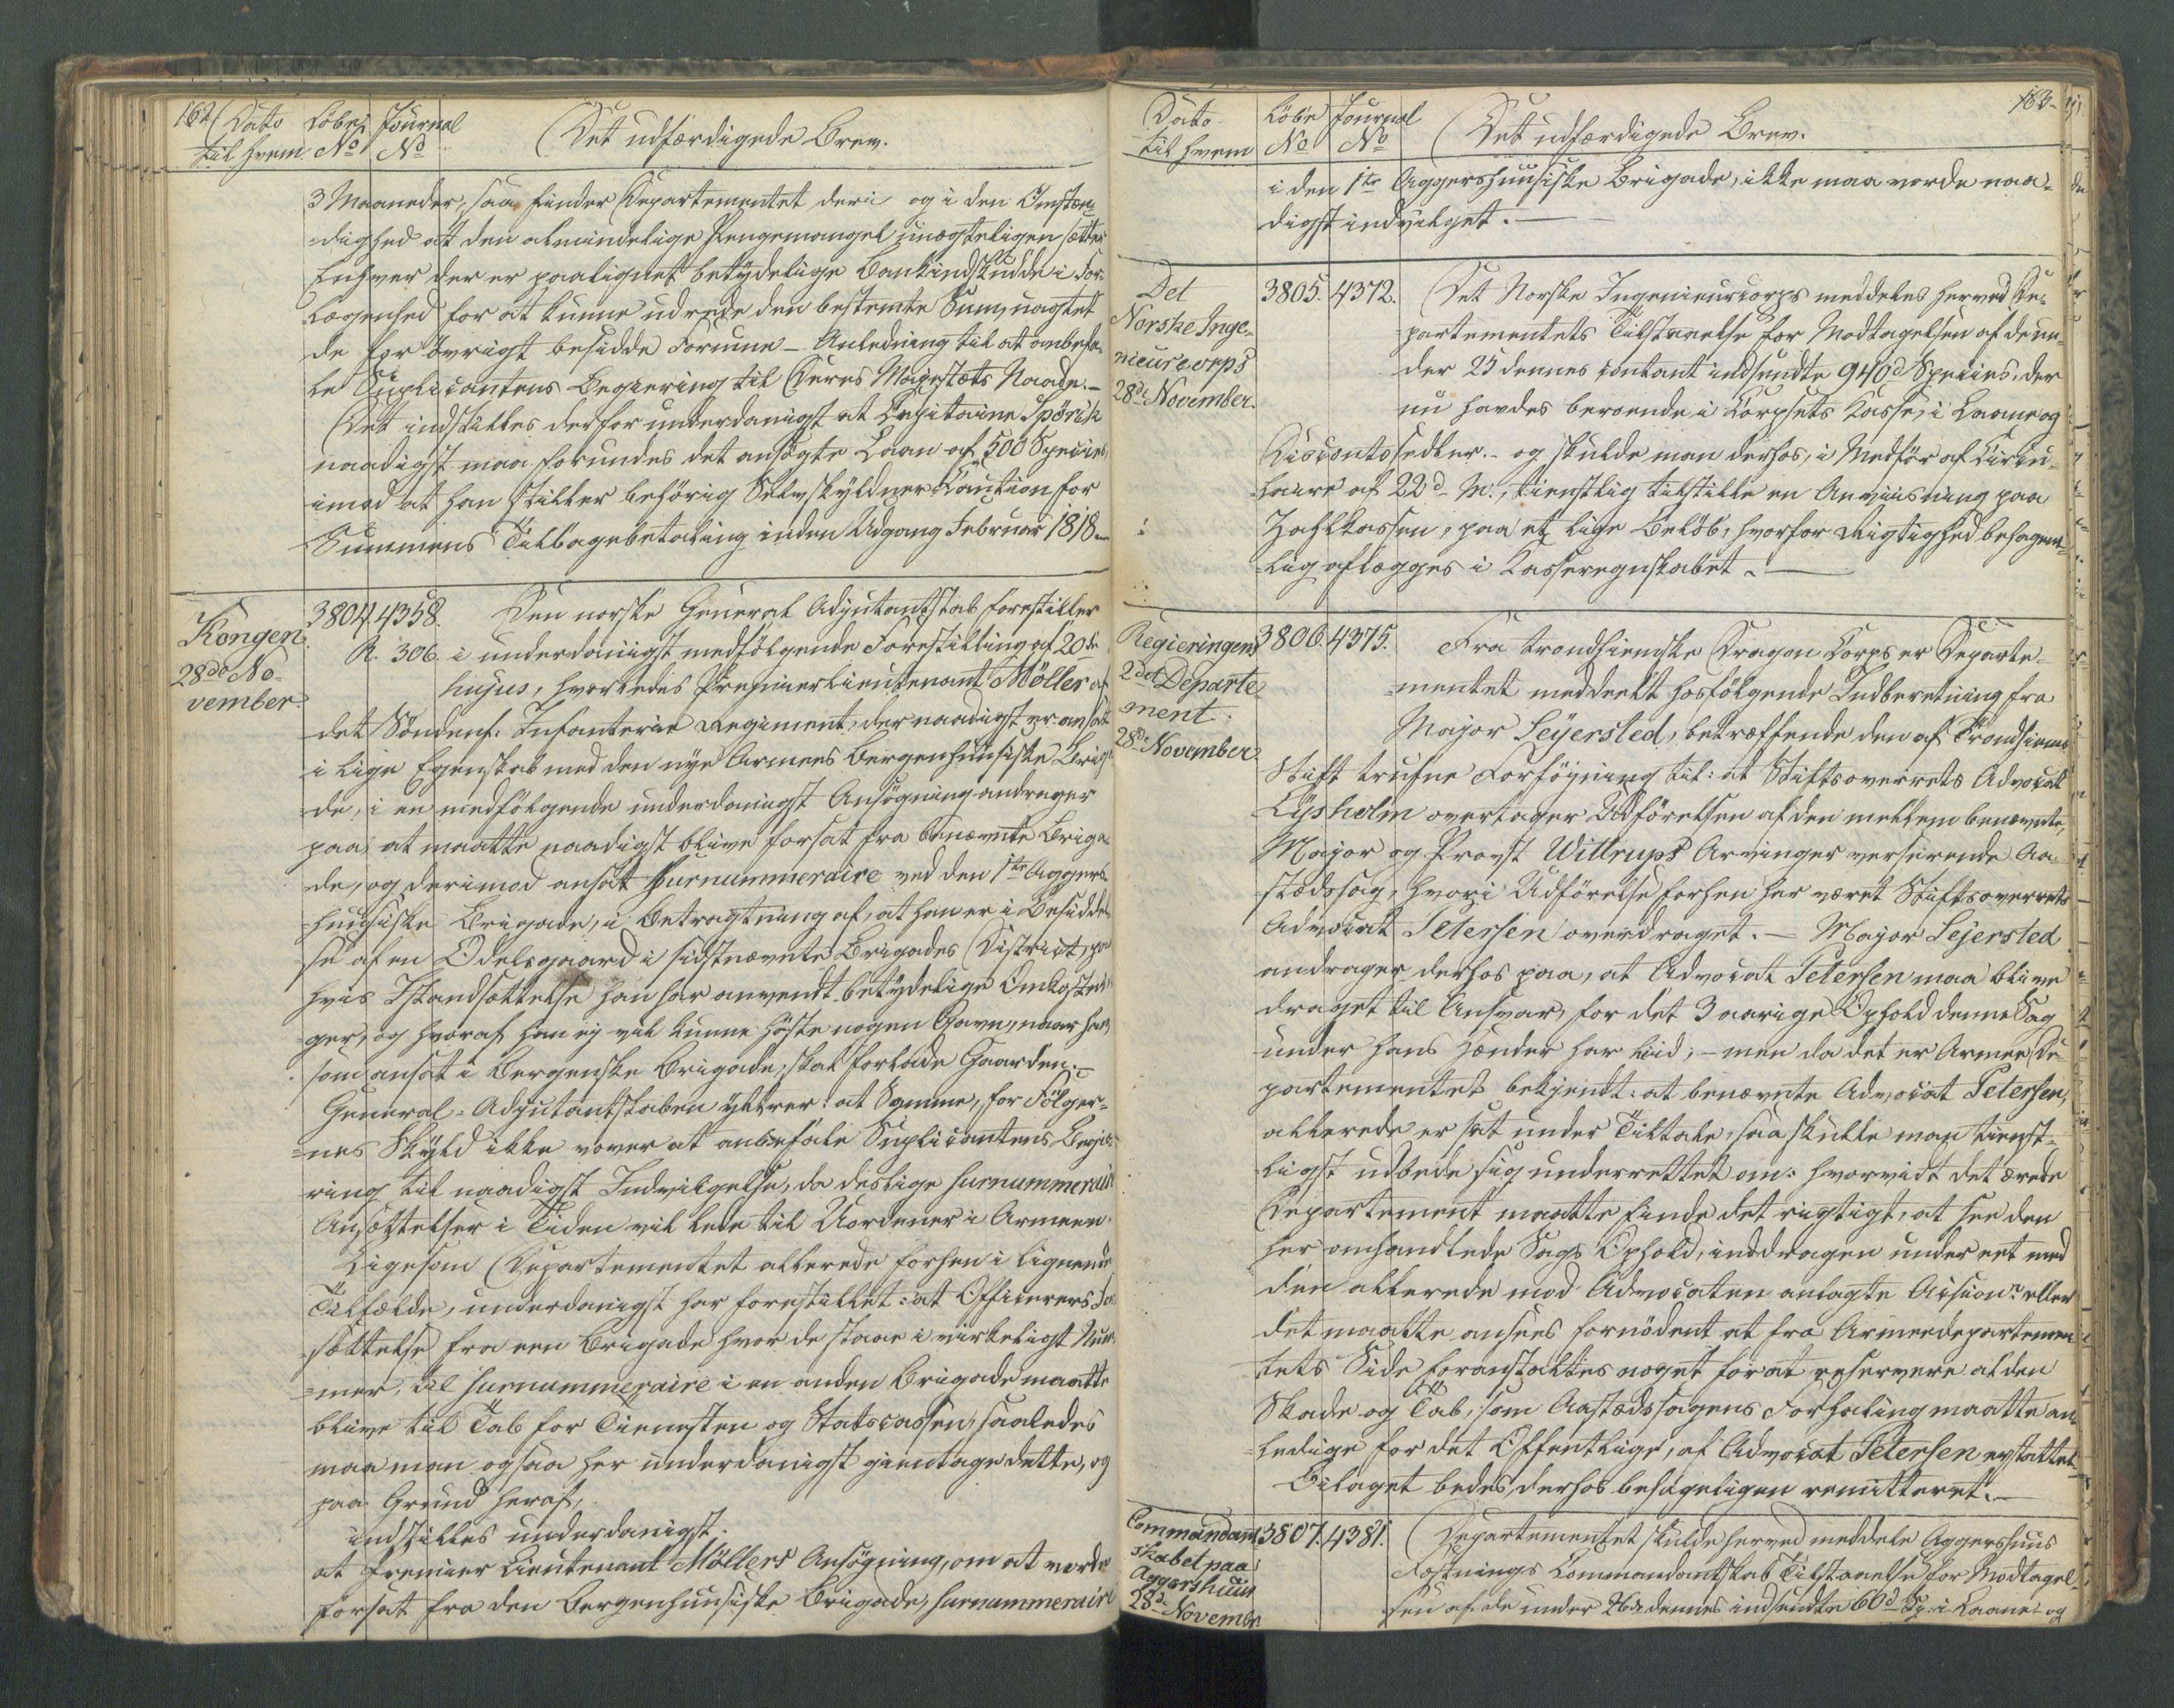 162
Dato Löbe Journal
til hvem No No Det udfærdigede Brev.
3 Maaneder, saa finder Departementet deri og i den Omstæn-
-dighed at den almindelige Pengemangel unægteligen sætter
Enhver der er paalignet betydelige Bankindskudde i For-
-lægenhed for at kunne udrede den bestemte Sum, uagtet
de for övrigt besidde Formue - Anledning til at anbefa-
le Suplicantens Begiering til Deres Majestæts Naade.-
Det indstilles derfor underdanigst at Capitaine Spörck
naadigst maa forundes det ansögte Laan af 500 Species,
imod at han stiller behörig Selvskyldner Caution for
Summens Tilbagebetaling inden Udgang Februar 1818.
Kongen
28de No-
vember
3804. 4358. Den norske General Adjutantstab forestiller
R. 306. i underdanigst medfölgende Forestilling af 20de
hujus, hvorledes Premierlieutenant Möller af
det Söndenf. Infanterie Regiment, der naadigst er ansat
i lige Egenskab med den nye Armees Bergenhuusiske Briga-
de, i en medfölgende underdanigst Ansögning andrager
paa, at maatte naadigst blive forsat fra benævnte Briga-
de, og derimod ansat surnummeraire ved den 1ste Aggers-
huusiske Brigade, i Betragtning af, at han er i Besiddel-
se af en Odelsgaard i sidstnævnte Brigades District, paa
hvis Istandsættelse han har anvendt betydelige Omkostnin-
ger, og hvoraf han ej vil kunne höste nogen Gavn, naar han,
som ansat i Bergenske Brigade, skal forlade Gaarden.-
General-Adjutantstaben yttrer: at Samme, for Fölger-
-nes Skyld ikke vover at anbefale Suplicantens Begie-
ring til naadigst Indvilgelse, da deslige surnummeraire
Ansættelser i Tiden vil lede til Uordener i Armeen.
Ligesom Departementet allerede forhen i lignende
Tilfælde, underdanigst har forestillet: at Officerers For-
sættelse fra een Brigade hvor de staae i virkeligt Num-
-mer, til surnummeraire i en anden Brigade maatte
blive til Tab for Tienesten og Statscassen, saaledes
maa man ogsaa her underdanigst gientage dette, og
paa Grund heraf,
indstilles underdanigst:
at Premier Lieutenant Möllers Ansögning, om at vorde
forsat fra den Bergenhuusiske Brigade, surnummeraire
163.
Dato Löbe Journal
til hvem No No Det udfærdigede Brev.
i den 1ste Aggershuusiske Brigade, ikke maa vorde naa-
digst indvilget.
Det
Norske Inge-
nieurcorps
28de November.
3805. 4372. Det Norske Ingenieurcorps meddeles herved De-
partementets Tilstaaelse for Modtagelsen af de un-
der 25 dennes contant indsendte 940 Species, der
nu havdes beroende i Corpsets Kasse, i Laane og
Discontosedler.- og skulde man derhos, i Medför af Circu-
-laire af 22d. M., tienstlig tilstille en Anviisning paa
Zahlkassen, paa et lige Belöb, hvorfor Rigtighed behagent-
-lig aflægges i Kasseregnskabet.
Regieringens
2det Departe
ment.
28de November.
3806. 4375. Fra trondhiemske Dragon Corps er Departe-
mentet meddeelt hosfölgende Indberetning fra
Major Seyersted, betræffende den af Trondhiems
Stift trufne Forföyning til: at Stiftsoverrets Advocat
Lysholm overtager Udförelsen af den mellem benævnte,
Major og Provst Wittrups Arvinger verserende Aa-
stædssag, hvori Udförelse forhen har været Stiftsoverrets
Advocat Petersen overdraget.- Major Sejersted
andrager derhos paa, at Advocat Petersen maa blive
draget til Ansvar, for det 3 aarige Ophold denne Sag
under hans Hænder har liid;- men da det er Armee De-
partementet bekjendt: at benævnte Advocat Petersen,
allerede er sat under Tiltale, saa skulle man tienst-
ligst udbede sig underrettet om: hvorvidt det ærede
Departement maatte finde det rigtigt, at see den
her omhandlede Sags Ophold, inddragen under eet med
den allerede mod Advocaten anlagte Action, eller
det maatte ansees fornödent at fra Armeedepartemen
tets Side foranstaltes noget for at reservere al den
Skade og Tab, som Aastædssagens Forhaling maatte an-
ledige for det Offentlige, af Advocat Petersen erstattet.
Bilaget bedes derhos behageligen remitteret.-
Commandant
skabet paa
Aggershuus
28de Novembr.
3807. 4381. Departementet skulde herved meddele Aggershuus
Fæstnings Commandantskab Tilstaaelse for Modtagel-
sen af de under 26de dennes indsendte 60 Sp. i Laane- og